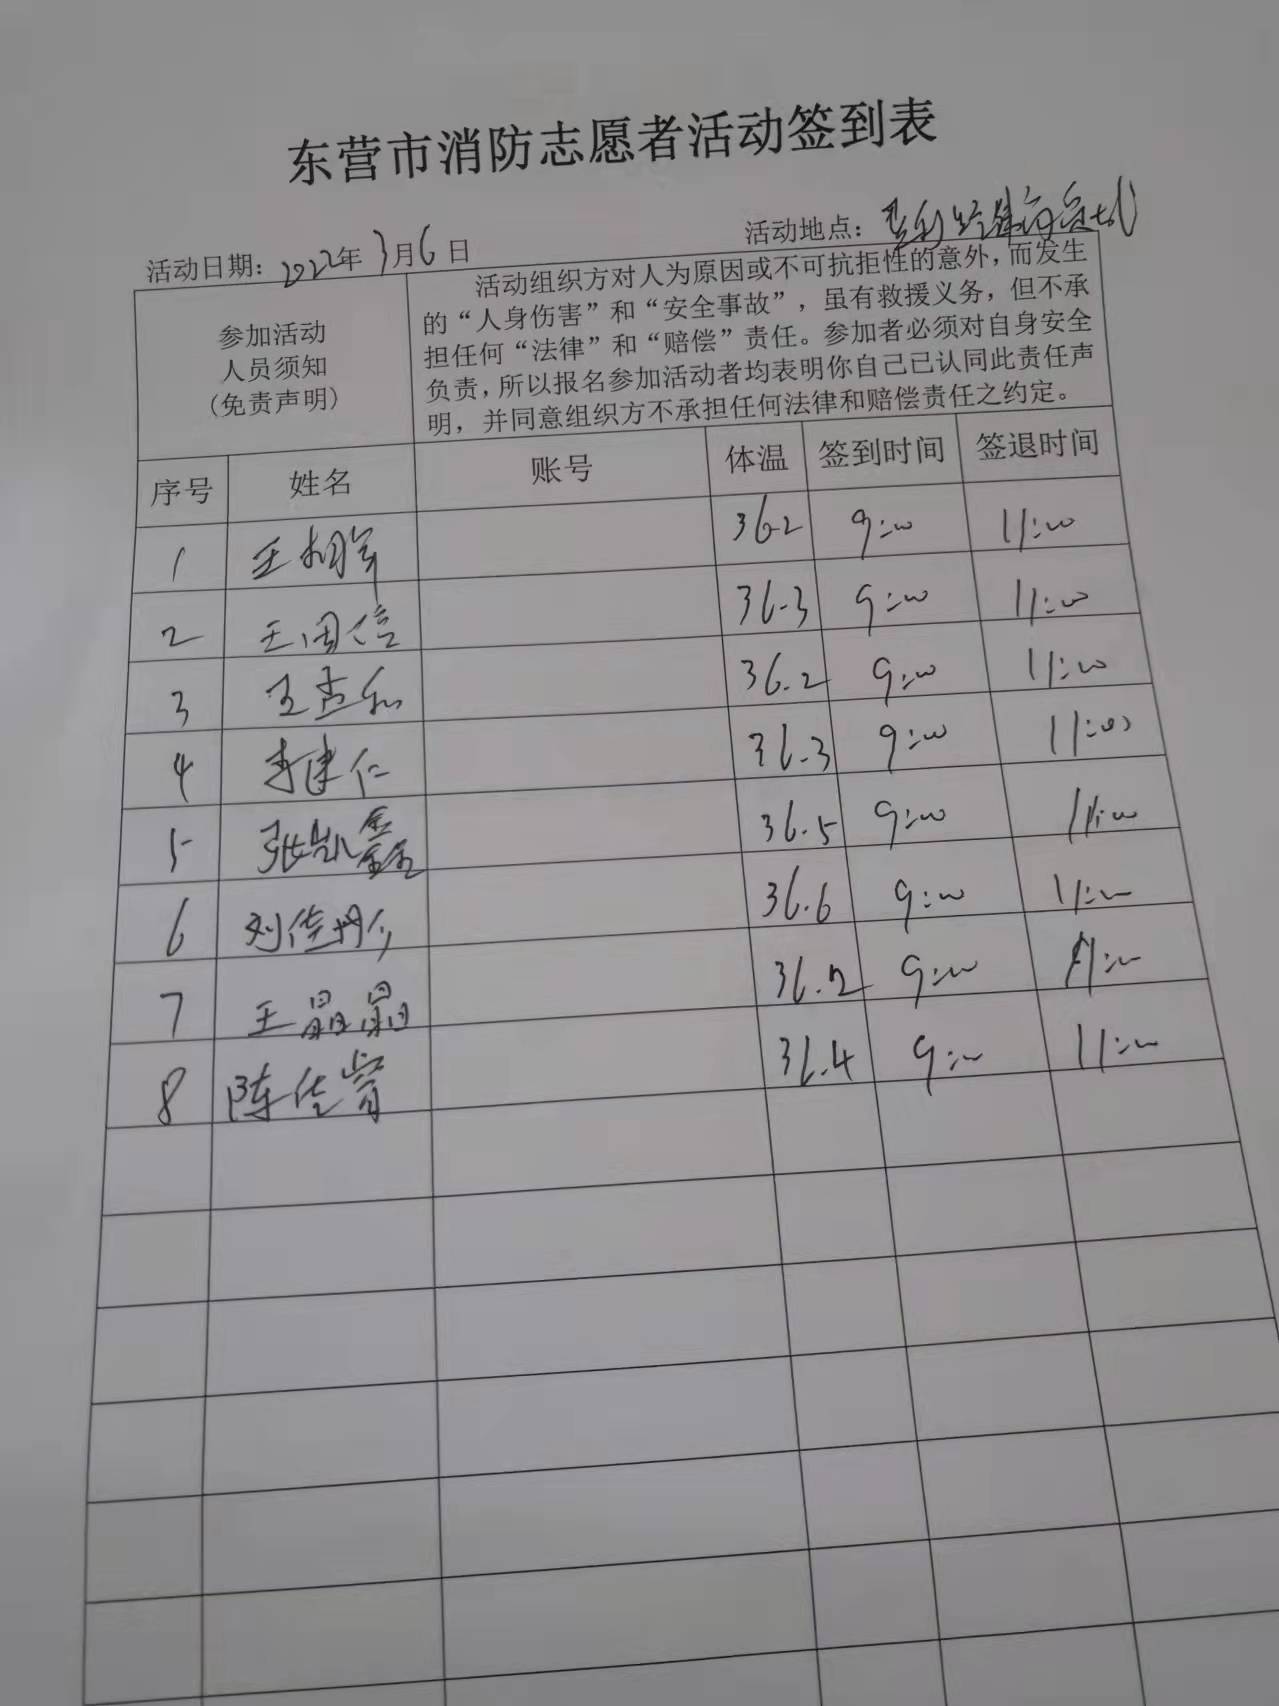 东营市消防志愿者活动签到表
活动日期：2022年3月6日 活动地点：
参加活动
人员须知
(免责声明)
活动组织方对人为原因或不可抗拒性的意外，而发生
的“人身伤害”和“安全事故”，虽有救援义务，但不承
担任何“法律”和“赔偿”责任。参加者必须对自身安全
负责，所以报名参加活动者均表明你自己已认同此责任声
明，并同意组织方不承担任何法律和赔偿责任之约定。
序号 姓名 账号 体温 签到时间 签退时间
1 王 36.2 9:00 11:00
2 王国信 36.3 9:00 11:00
3 王 36.2 9:00 11:00
4 李建仁 36.3 9:00 11:00
5 张凯鑫 36.5 9:00 11:00
6 刘佳 36.6 9:00 11:00
7 王晶晶 36.2 9:00 11:00
8 陈佳 36.4 9:00 11:00